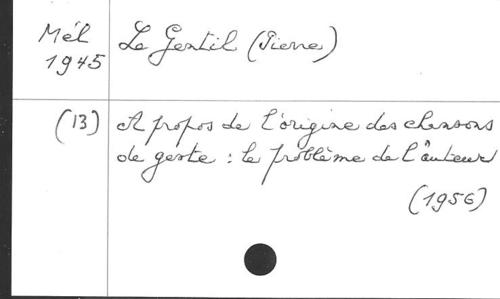 Mél Le Gentil (Pierre)
1945
(13) A propos de l'origine des chansons
de geste : le problème de l'auteur
(1956)